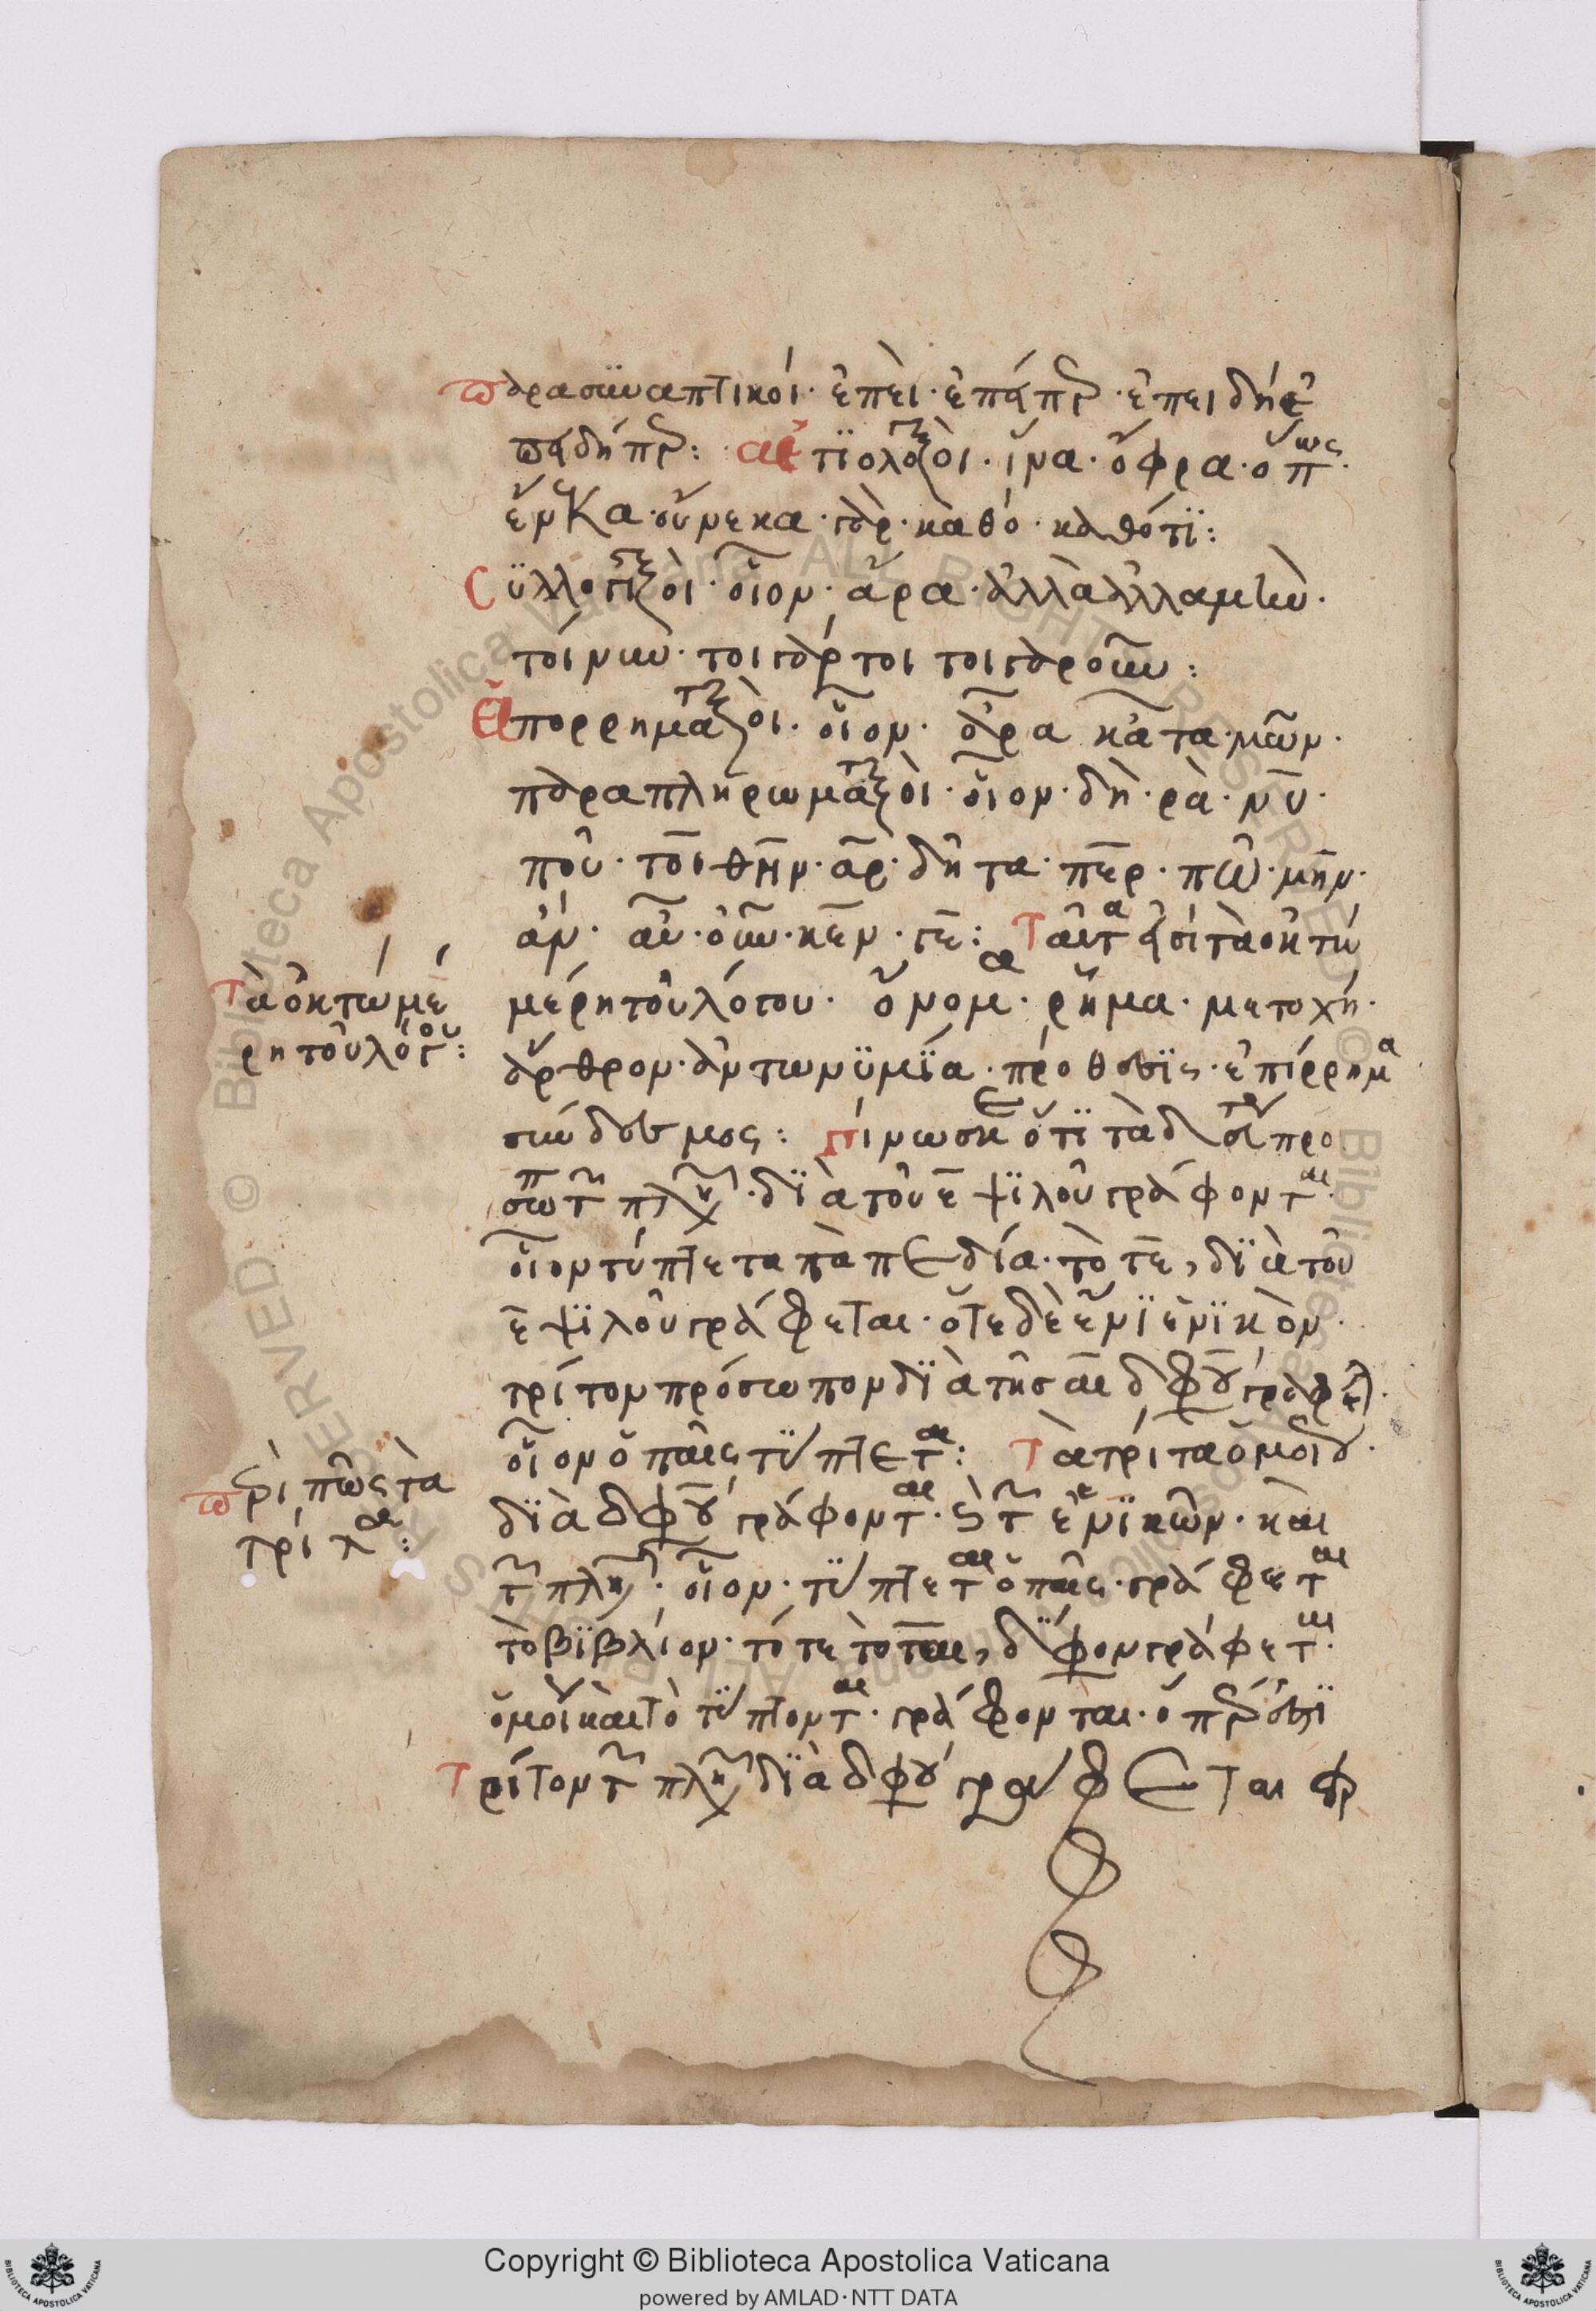 παρασϋναπτικοί· ἐπεὶ· ἐπείπερ· ἐπειδή· ἐ
πειδήπερ: αἰτϊολογικοὶ· ἵνα· ὄφρα· ὅπως·
ἕνεκα· οὕνεκα· γὰρ· καθὸ· καθότϊ:
Σϋλλογιστικοὶ· οἷον· ἄρα· ἀλλὰ ἀλλαμὴν·
τοίνυν· τοιγάρτοι τοιγαροῦν:
Ἀπορρηματικοὶ· οἷον· ἆρα κᾆτα· μῶν·
παραπληρωματικοὶ· οἷον· δὴ· ρὰ· νῦ·
ποῦ· τοὶ θὴν· ἂρ· δῆτα· πὲρ· πῶ· μὴν·
ἂν· αὖ· οὖν· κὲν· γὲ: Ταῦτα εἰσὶ τὰ ὀκτὼ
μέρη τοῦ λόγου· ὄνομα· ρῆμα· μετοχή·
ἄρθρον· ἀντωνϋμϊα· πρόθεσϊς· ἐπίρρημα
σύνδεσμος: γίνωσκε ὅτϊ τὰ δευτέρου προ
σώπου τῶν πληθυντικῶν· δϊὰ τοῦ ε ψϊλοῦ γράφονται·
οἷον τύπτετα τὰ παιδία· τὸ τε, δϊὰ τοῦ
ε ψϊλοῦ γράφεται· ὅτε δὲ ἔνϊ ἑνϊκὸν·
τρίτον πρόσωπον δϊὰ τῆς αι διφθόγγου γράφεται·
οἷον ὁ παῖς τύπτεται: Τὰ τρίτα ὁμοίως
δϊὰ διφθόγγου γράφονται· καὶ τῶν ἑνϊκῶν· καὶ
τῶν πληθυντικῶν· οἷον· τύπτεται ὁ παῖς· γράφεται
τὸ βϊβλίον· τό τε τὸ ται, δίφθογγον γράφεται·
ὁμοίως καὶ τὸ τύπτονται· γράφονται· ὅπερ ἐστϊ
τρίτον τῶν πληθυντικῶν δϊὰ διφθόγγου γράφεται
Τὰ ὀκτὼ μέ
ρη τοῦ λόγου:
περὶ πῶς τὰ
Copyright © Biblioteca Apostolica Vaticana
powered by AMLAD·NTT DATA